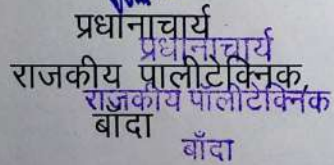 प्रधानाचार्य
प्रधानाचार्य
राजकीय पालीटेक्निक,
राजकीय पॉलीटेक्निक
बाँदा
बाँदा